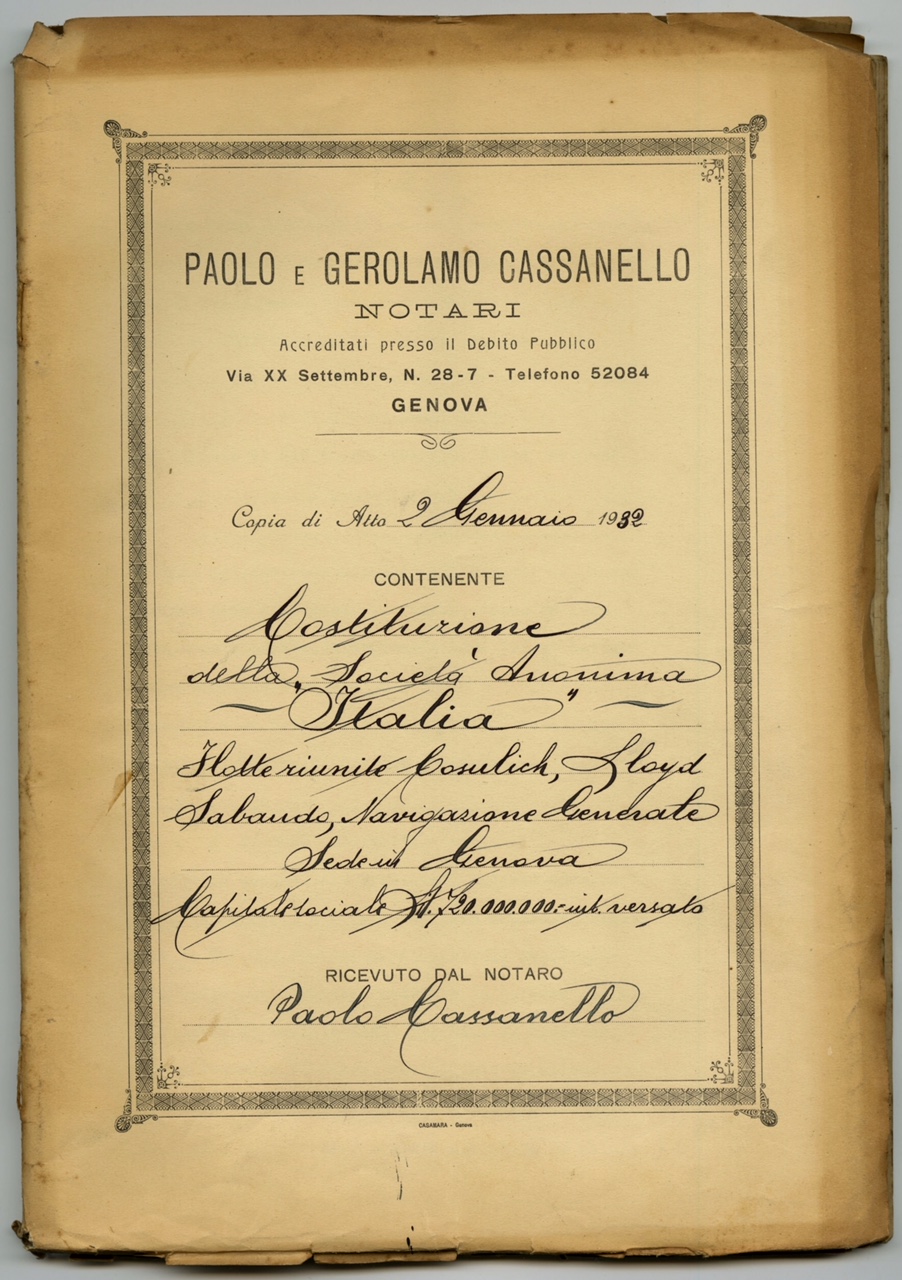 PAOLO E GEROLAMO CASSANELLO
NOTARI
Accreditati presso il Debito Pubblico
Via XX Settembre, N. 28-7 - Telefono 52084
GENOVA
Copia di Atto 2 Gennaio 1932
CONTENENTE
Costituzione
della Società Anonima
"Italia"
Flotte riunite Cosulich, Lloyd
Sabaudo, Navigazione Generale
Sede in Genova
Capitale sociale Lit. 720.000.000.- int. versato
RICEVUTO DAL NOTARO
Paolo Cassanello
CASAMARA - Genova